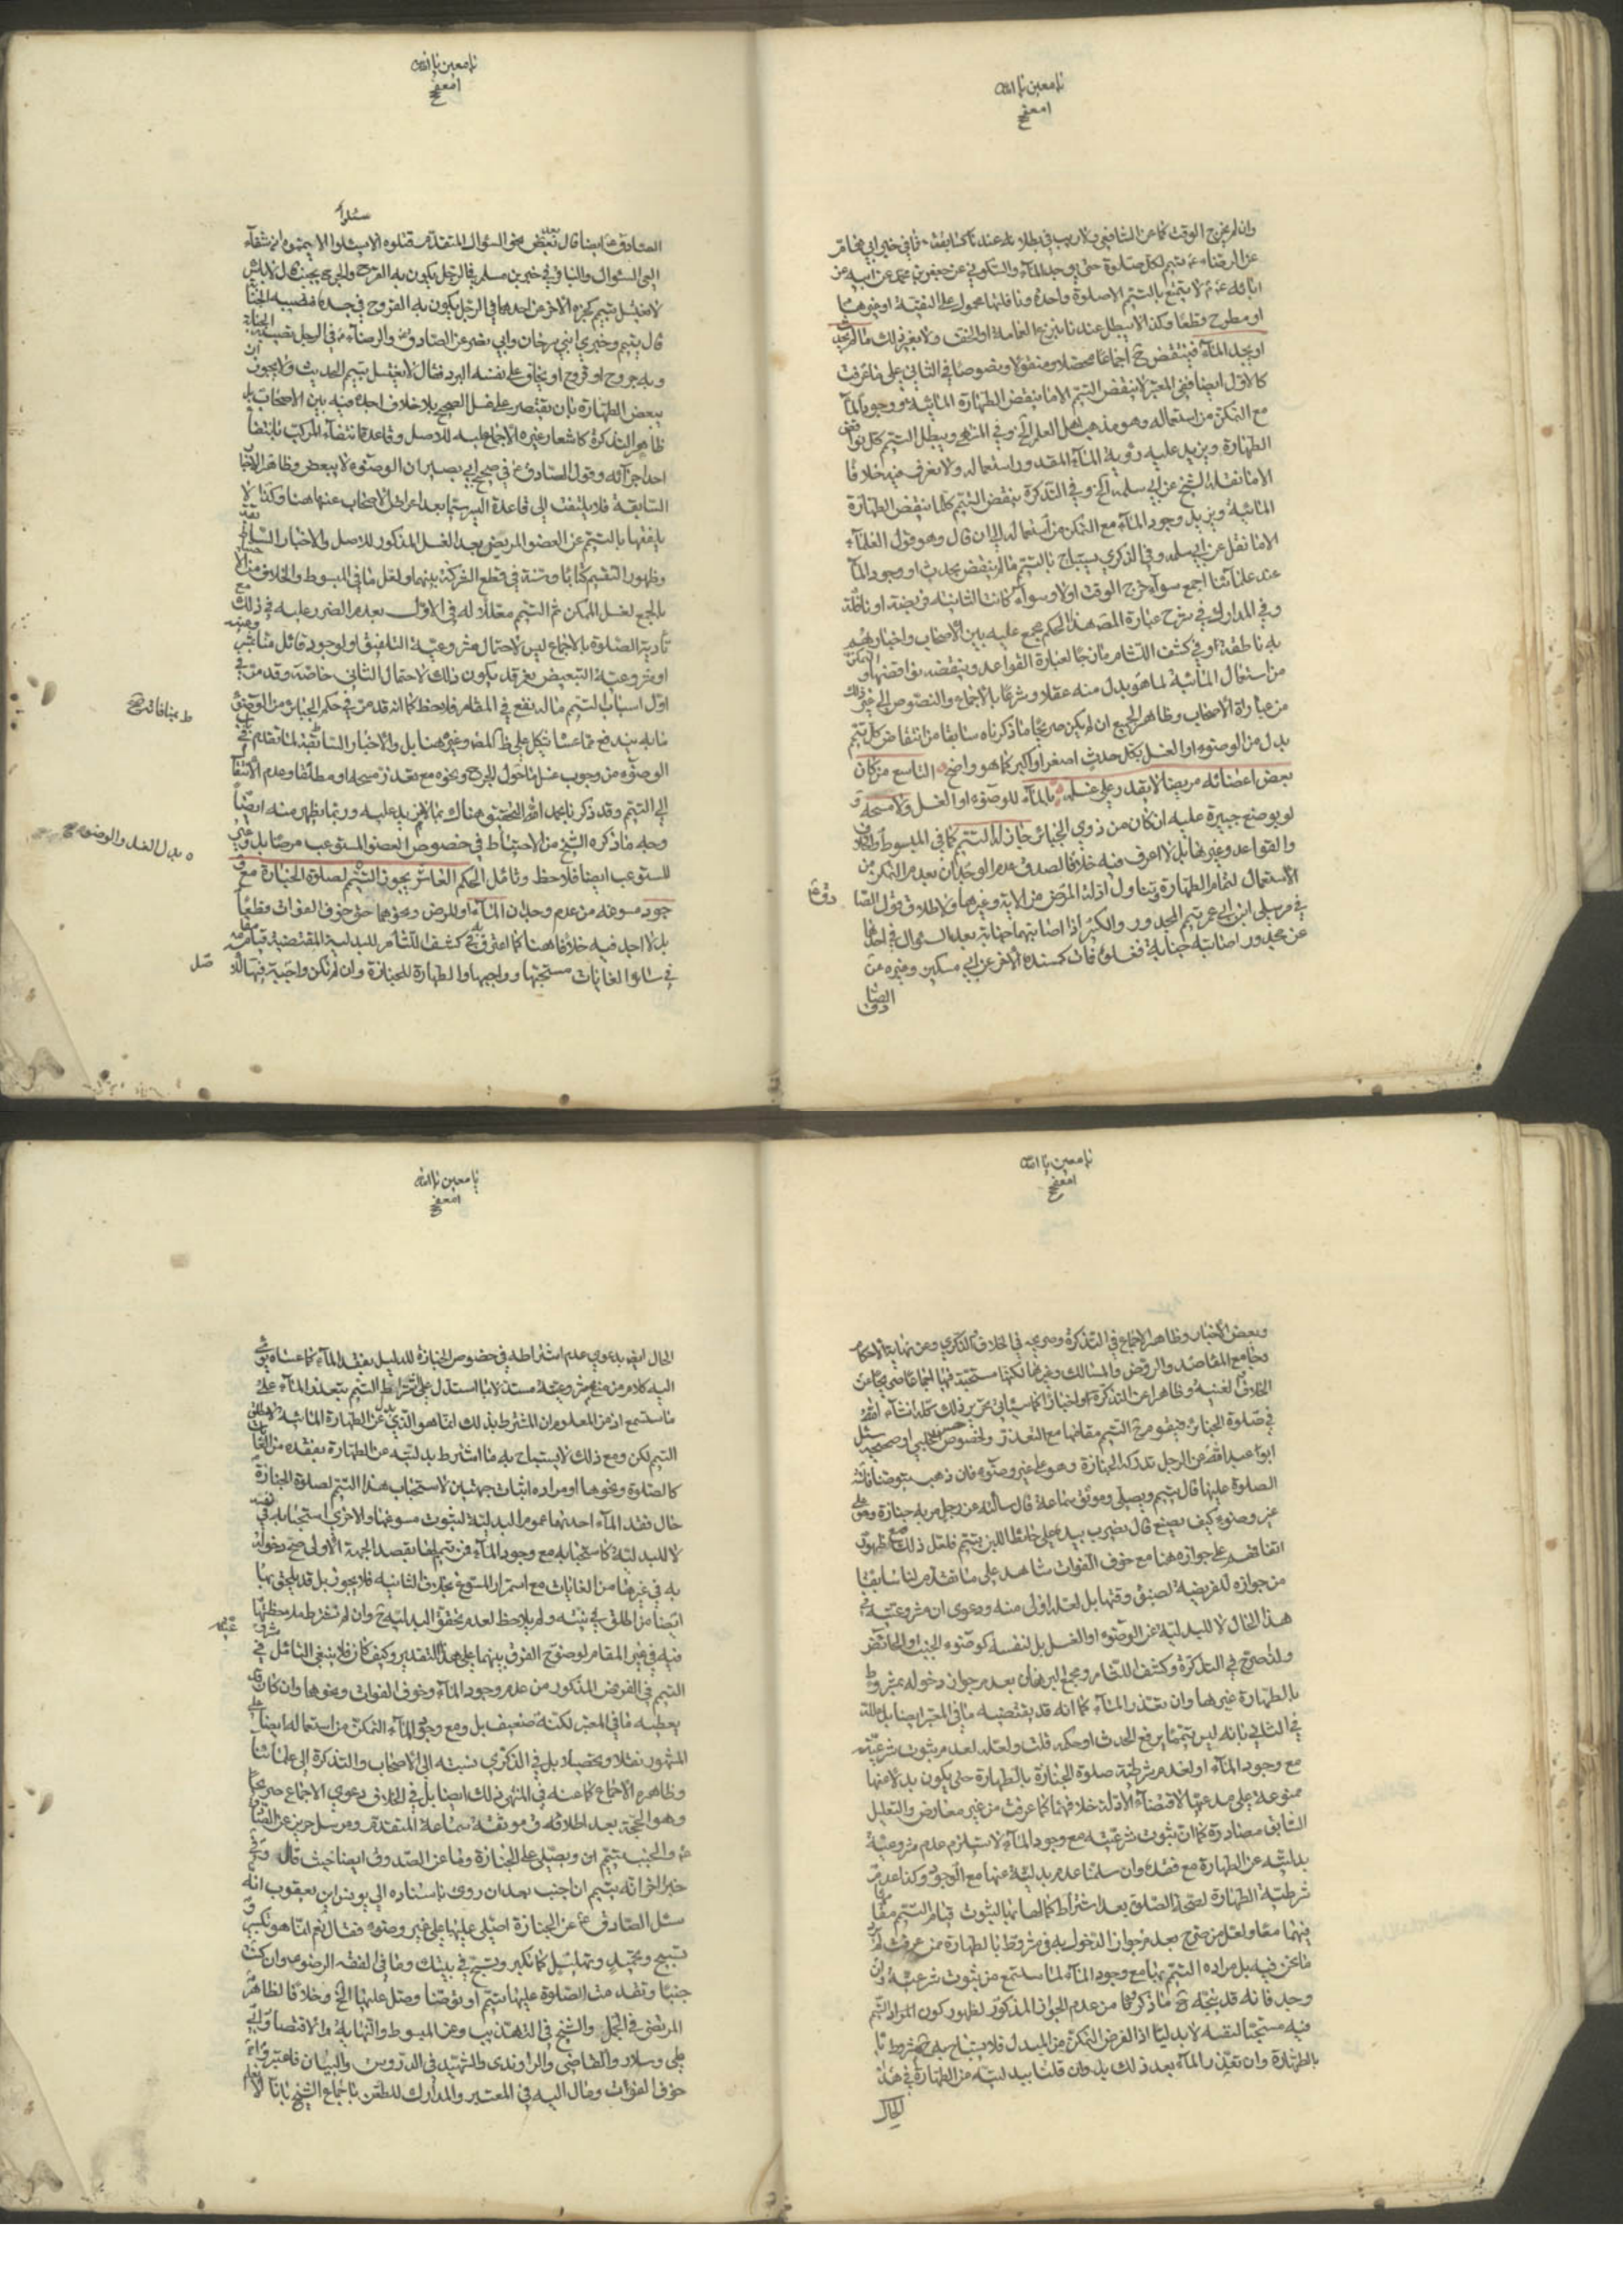 يا معين يا الله
وان لم يخرج الوقت كما عن الشافعي بلا ريب في بطلانه عندنا كسابقه فما في خبر ابي همام
عن الرضا ع يتيمم لكل صلوة حتى يوجد الماء والسكوني عن جعفر بن محمد عن ابيه عن
ابائه ع لا يتمتع بالتيمم الا صلوة واحدة ونافلتها محمول على التقية او غيرهما
او مطروح قطعا وكذا لا يبطل عندنا بنزع العمامة او الخف ولا بغير ذلك ما لم يحدث
او يجد الماء فينتقض ح اجماعا محصلا ومنقولا ونصوصا في الثاني على ما عرفت
كالاول ايضا ففي المعتبر لا ينقض التيمم الا ما ينقض الطهارة المائية ووجود الماء
مع التمكن من استعماله وهو مذهب اهل العلم الخ وفي المنتهى ويبطل التيمم كل نواقض
الطهارة ويزيد عليه رؤية الماء المقدور استعماله ولا نعرف فيه خلافا
الا ما نقله الشيخ عن ابي سلمة الخ وفي التذكرة ينقض التيمم كلما ينقض الطهارة
المائية ويزيد وجود الماء مع التمكن من استعماله الى ان قال وهو قول العلماء
الا ما نقل عن ابي سلمة وفي الذكرى يستباح بالتيمم ما لم ينتقض بحدث او وجود الماء
عند علمائنا اجمع سواء خرج الوقت اولا وسواء كانت الثانية فريضة او نافلة
وفي المدارك في شرح عبارة المصنف هذا الحكم مجمع عليه بين الاصحاب واخبارهم
به ناطقة وفي كشف اللثام مازجا لعبارة القواعد وينقضه نواقضها والتمكن
من استعمال المائية لما هو بدل منه عقلا وشرعا بالاجماع والنصوص الى غير ذلك
من عبارات الاصحاب وظاهر الجميع ان لم يكن صريحا ما ذكرناه سابقا من انتقاض كل تيمم
بدل من الوضوء او الغسل بكل حدث اصغر او اكبر كما هو واضح التاسع من كان
بعض اعضائه مريضا لا يقدر على غسله بالماء للوضوء او الغسل ولا مسحه و
لو بوضع جبيرة عليه ان كان من ذوي الجبائر جاز له التيمم كما في المبسوط والخلاف
والقواعد وغيرها بل لا اعرف فيه خلافا لصدق عدم الوجدان بعدم التمكن من
الاستعمال لتمام الطهارة وتناول ادلة المرض من الاية وغيرها ولاطلاق قول الصادق ع
في مرسل ابن ابي عمير يتيمم المجدور والكسير اذا اصابتهما جنابة بعد السؤال في احدهما
عن مجدور اصابته جنابة فغسلوه فمات كمسنده الاخر عن ابن مسكين وغيره عن
الصادق
يا معين يا الله
الصادق ع ايضا قال بعض نحو السؤال المتقدم قتلوه الا سئلوا الا يمموه ان شفاء
العي السؤال والباقر ع في خبر ابن مسلم في الرجل يكون به القرح والجرح يجنب قال لا باس
لا يغتسل يتيمم كخبره الاخر عن احدهما في الرجل يكون به القروح في جسده فتصيبه الجنابة
قال يتيمم وخبري ابني سرحان وابي نصر عن الصادق والرضا ع في الرجل تصيبه الجنابة
وبه جروح او قروح او يخاف على نفسه البرد فقال لا يغتسل يتيمم الحديث ولا يجوز ان
يبعض الطهارة بان يقتصر على غسل الصحيح بلا خلاف اجده فيه بين الاصحاب بل
ظاهر التذكرة كاشعار غيره الاجماع عليه للاصل وقاعدة انتفاء المركب بانتفاء
احد اجزائه وقول الصادق ع في صحيح ابي بصير ان الوضوء لا يبعض وظاهر الاخبار
السابقة فلا يلتفت الى قاعدة الميسور سيما بعد اعراض الاصحاب عنها هنا وكذا لا
يلفقها بالتيمم عن العضو المريض بعد الغسل المذكور للاصل والاخبار السابقة
وظهور التقسيم كتابا وسنة في قطع الشركة بينهما ولعل ما في المبسوط والخلاف من الاحتياط
بالجمع لغسل الممكن ثم التيمم معللا له في الاول بعدم الضرر عليه في ذلك مع
تأدية الصلوة بالاجماع ليس لاحتمال مشروعية التلفيق او لوجود قائل منا بتعينه
او مشروعية التبعيض نعم قد يكون ذلك لاحتمال الثاني خاصة وقد مر في
اول اسباب التيمم ما له نفع في المقام فلاحظ كما انه قد مر في حكم الجبائر من الوضوء
ما به يندفع ما عساه يشكل على ظ المصنف وغيره هنا بل والاخبار السابقة لما تقدم في
الوضوء من وجوب غسل ما حول الجرح ونحوه مع تعذر مسحه او مطلقا وعدم الانتقال
الى التيمم وقد ذكرنا بحمد الله التحقيق هناك بما لا مزيد عليه وربما يظهر منه ايضا
وجه ما ذكره الشيخ من الاحتياط في خصوص العضو المستوعب مرضا بل وغير
المستوعب ايضا فلاحظ وتأمل الحكم العاشر يجوز التيمم لصلوة الجنازة مع و
جود مسوغه من عدم وجدان الماء او المرض ونحوهما حتى خوف الفوات قطعا
بل لا اجد فيه خلافا هنا كما اعترف به في كشف اللثام للبدلية المقتضية قيامه مقامه
في سائر الغايات مستحبها وواجبها والطهارة للجنازة وان لم تكن واجبة فيها للا
صل
ط بمنافاته ح
بدل الغسل والوضوء ح
يا معين يا الله
وبعض الاخبار وظاهر الاجماع في التذكرة وصريحه في الخلاف والذكرى وعن نهاية الاحكام
وجامع المقاصد والروض والمسالك وغيرها لكنها مستحبة فيها اجماعا صريحا عن
الخلاف والغنية وظاهرا عن التذكرة واخبارا كما سيأتي تحرير ذلك كله انشاء الله
في صلوة الجنازة فيقوم ح التيمم مقامها مع التعذر ولخصوص حسن الحلبي او صحيحه سئل
ابو عبد الله عن الرجل تدركه الجنازة وهو على غير وضوء فان ذهب يتوضأ فاتته
الصلوة عليها قال يتيمم ويصلي وموثق سماعة قال سألته عن رجل مر به جنازة وهو على
غير وضوء كيف يصنع قال يضرب بيده على حائط اللبن يتيمم فلعل ذلك مع ظهور
اتفاقهم على جوازه هنا مع خوف الفوات شاهد على ما تقدم لنا سابقا
من جوازه للفريضة لضيق وقتها بل لعله اولى منه ودعوى ان مشروعيته في
هذا الحال لا للبدلية عن الوضوء او الغسل بل لنفسه كوضوء الجنب والحائض
ولذا صرح في التذكرة وكشف اللثام ومجمع البرهان بعدم جواز دخوله بمشروط
بالطهارة غيرها وان تعذر الماء كما انه قد يقتضيه ما في المعتبر ايضا بل علله
في الثاني بانه ليس تيمما يرفع الحدث او حكمه قلت ولعله لعدم ثبوت شرعيته
مع وجود الماء او لعدم شرطية صلوة الجنازة بالطهارة حتى يكون بدلا منها
ممنوعة على مدعيها لاقتضاء الادلة خلافهما كما عرفت من غير معارض والتعليل
السابق مصادرة كما ان ثبوت شرعيته مع وجود الماء لا يستلزم عدم مشروعية
بدليته عن الطهارة مع فقده وان سلمنا عدم بدليته عنها مع الوجود وكذا عدم
شرطية الطهارة لصحة الصلوة بعد اشتراط كمالها بها لثبوت قيام التيمم مقامها
فيهما معا ولعل من صرح بعدم جواز الدخول به في مشروط بالطهارة ممن عرفت لم يرد
ما نحن فيه بل مراده التيمم بها مع وجود الماء لما ستسمع من ثبوت شرعيته وان
وجد فانه قد يتجه ح ما ذكروه من عدم الجواز المذكور لظهور كون المراد التيمم
فيه مستحبا لنفسه لا بدليا اذ الفرض التمكن من المبدل فلا يستباح به ح مشروط
بالطهارة وان تعذر الماء بعد ذلك بل وان قلنا ببدليته من الطهارة في هذا
الحال
يا معين يا الله
الحال ايضا بدعوى عدم اشتراطه في خصوص الجنازة للدليل بفقد الماء كما عساه يومي
اليه كلام من منع مشروعيته مستدلا بما استدل على اشتراط التيمم بتعذر الماء على
ما ستسمع اذ من المعلوم ان المشترط بذلك انما هو الذي بدل عن الطهارة المائية لا مطلق
التيمم لكن ومع ذلك لا يستباح به ما اشترط بدليته عن الطهارة بفقده من الغايات
كالصلوة ونحوها او مراده اثبات جهتين لاستحباب هذا التيمم لصلوة الجنازة
حال فقد الماء احدهما عموم البدلية لثبوت مسوغها والاخرى استحبابه في نفسه
لا للبدلية كاستحبابه مع وجود الماء فمن تيمم لها بقصد الجهة الاولى صح دخوله
به في غيرها من الغايات مع استمرار المسوغ بخلاف الثانية فلا يجوز بل قد يلحق بها
ايضا من اطلق في نيته ولم يلاحظ لعدم تحقق البدلية ح وان لم نشترط ملاحظتها
فيه في غير المقام لوضوح الفرق بينهما على هذا التقدير وكيف كان فلا ينبغي التأمل في
التيمم في الفرض المذكور من عدم وجود الماء وخوف الفوات ونحوها وان كان قد
يعطيه ما في المعتبر لكنه ضعيف بل ومع وجود الماء والتمكن من استعماله ايضا على
المشهور نقلا وتحصيلا بل في الذكرى نسبته الى الاصحاب والتذكرة الى علمائنا
وظاهره الاجماع كما عنه في المنتهى ذلك ايضا بل في الخلاف دعوى الاجماع صريحا
وهو الحجة بعد اطلاقه في موثقة سماعة المتقدمة ومرسل حريز عن الصادق
ع والجنب يتيمم ويصلي على الجنازة وما عن الصدوق ايضا حيث قال وفي
خبر اخر انه يتيمم ان اجنب بعد ان روى باسناده الى يونس ابن يعقوب انه
سئل الصادق ع عن الجنازة اصلي عليها على غير وضوء فقال نعم انما هو تكبير و
تسبيح وتحميد وتهليل كما تكبر وتسبح في بيتك وما في الفقه الرضوي وان كنت
جنبا وتقدمت الصلوة عليها فتيمم او توضأ وصل عليها الخ وخلافا لظاهر
المرتضى في الجمل والشيخ في التهذيب وعن المبسوط والنهاية والاقتصاد وابي
علي وسلار والقاضي والراوندي والشهيد في الدروس والبيان فاعتبروا
خوف الفوات ومال اليه في المعتبر والمدارك للطعن باجماع الشيخ بانا لا نعلم